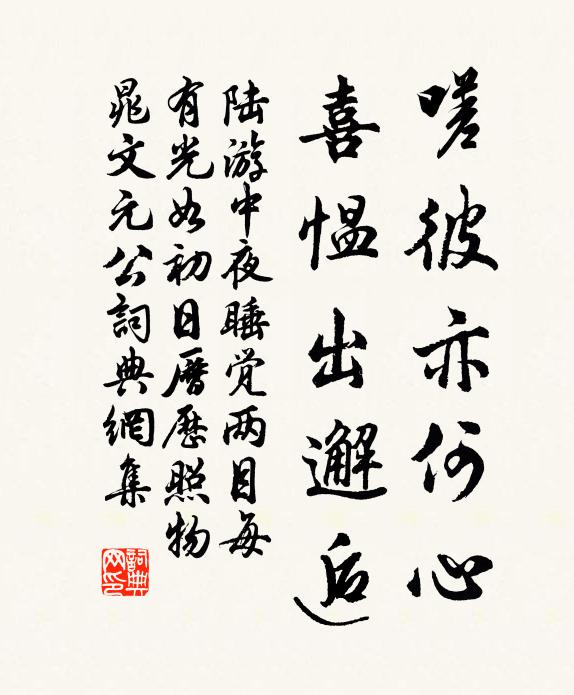 嗟彼亦何心
喜愠出邂逅
陆游中夜睡觉两目每
有光如初日历历照物
晁文元公詞典網集
詞典
网印